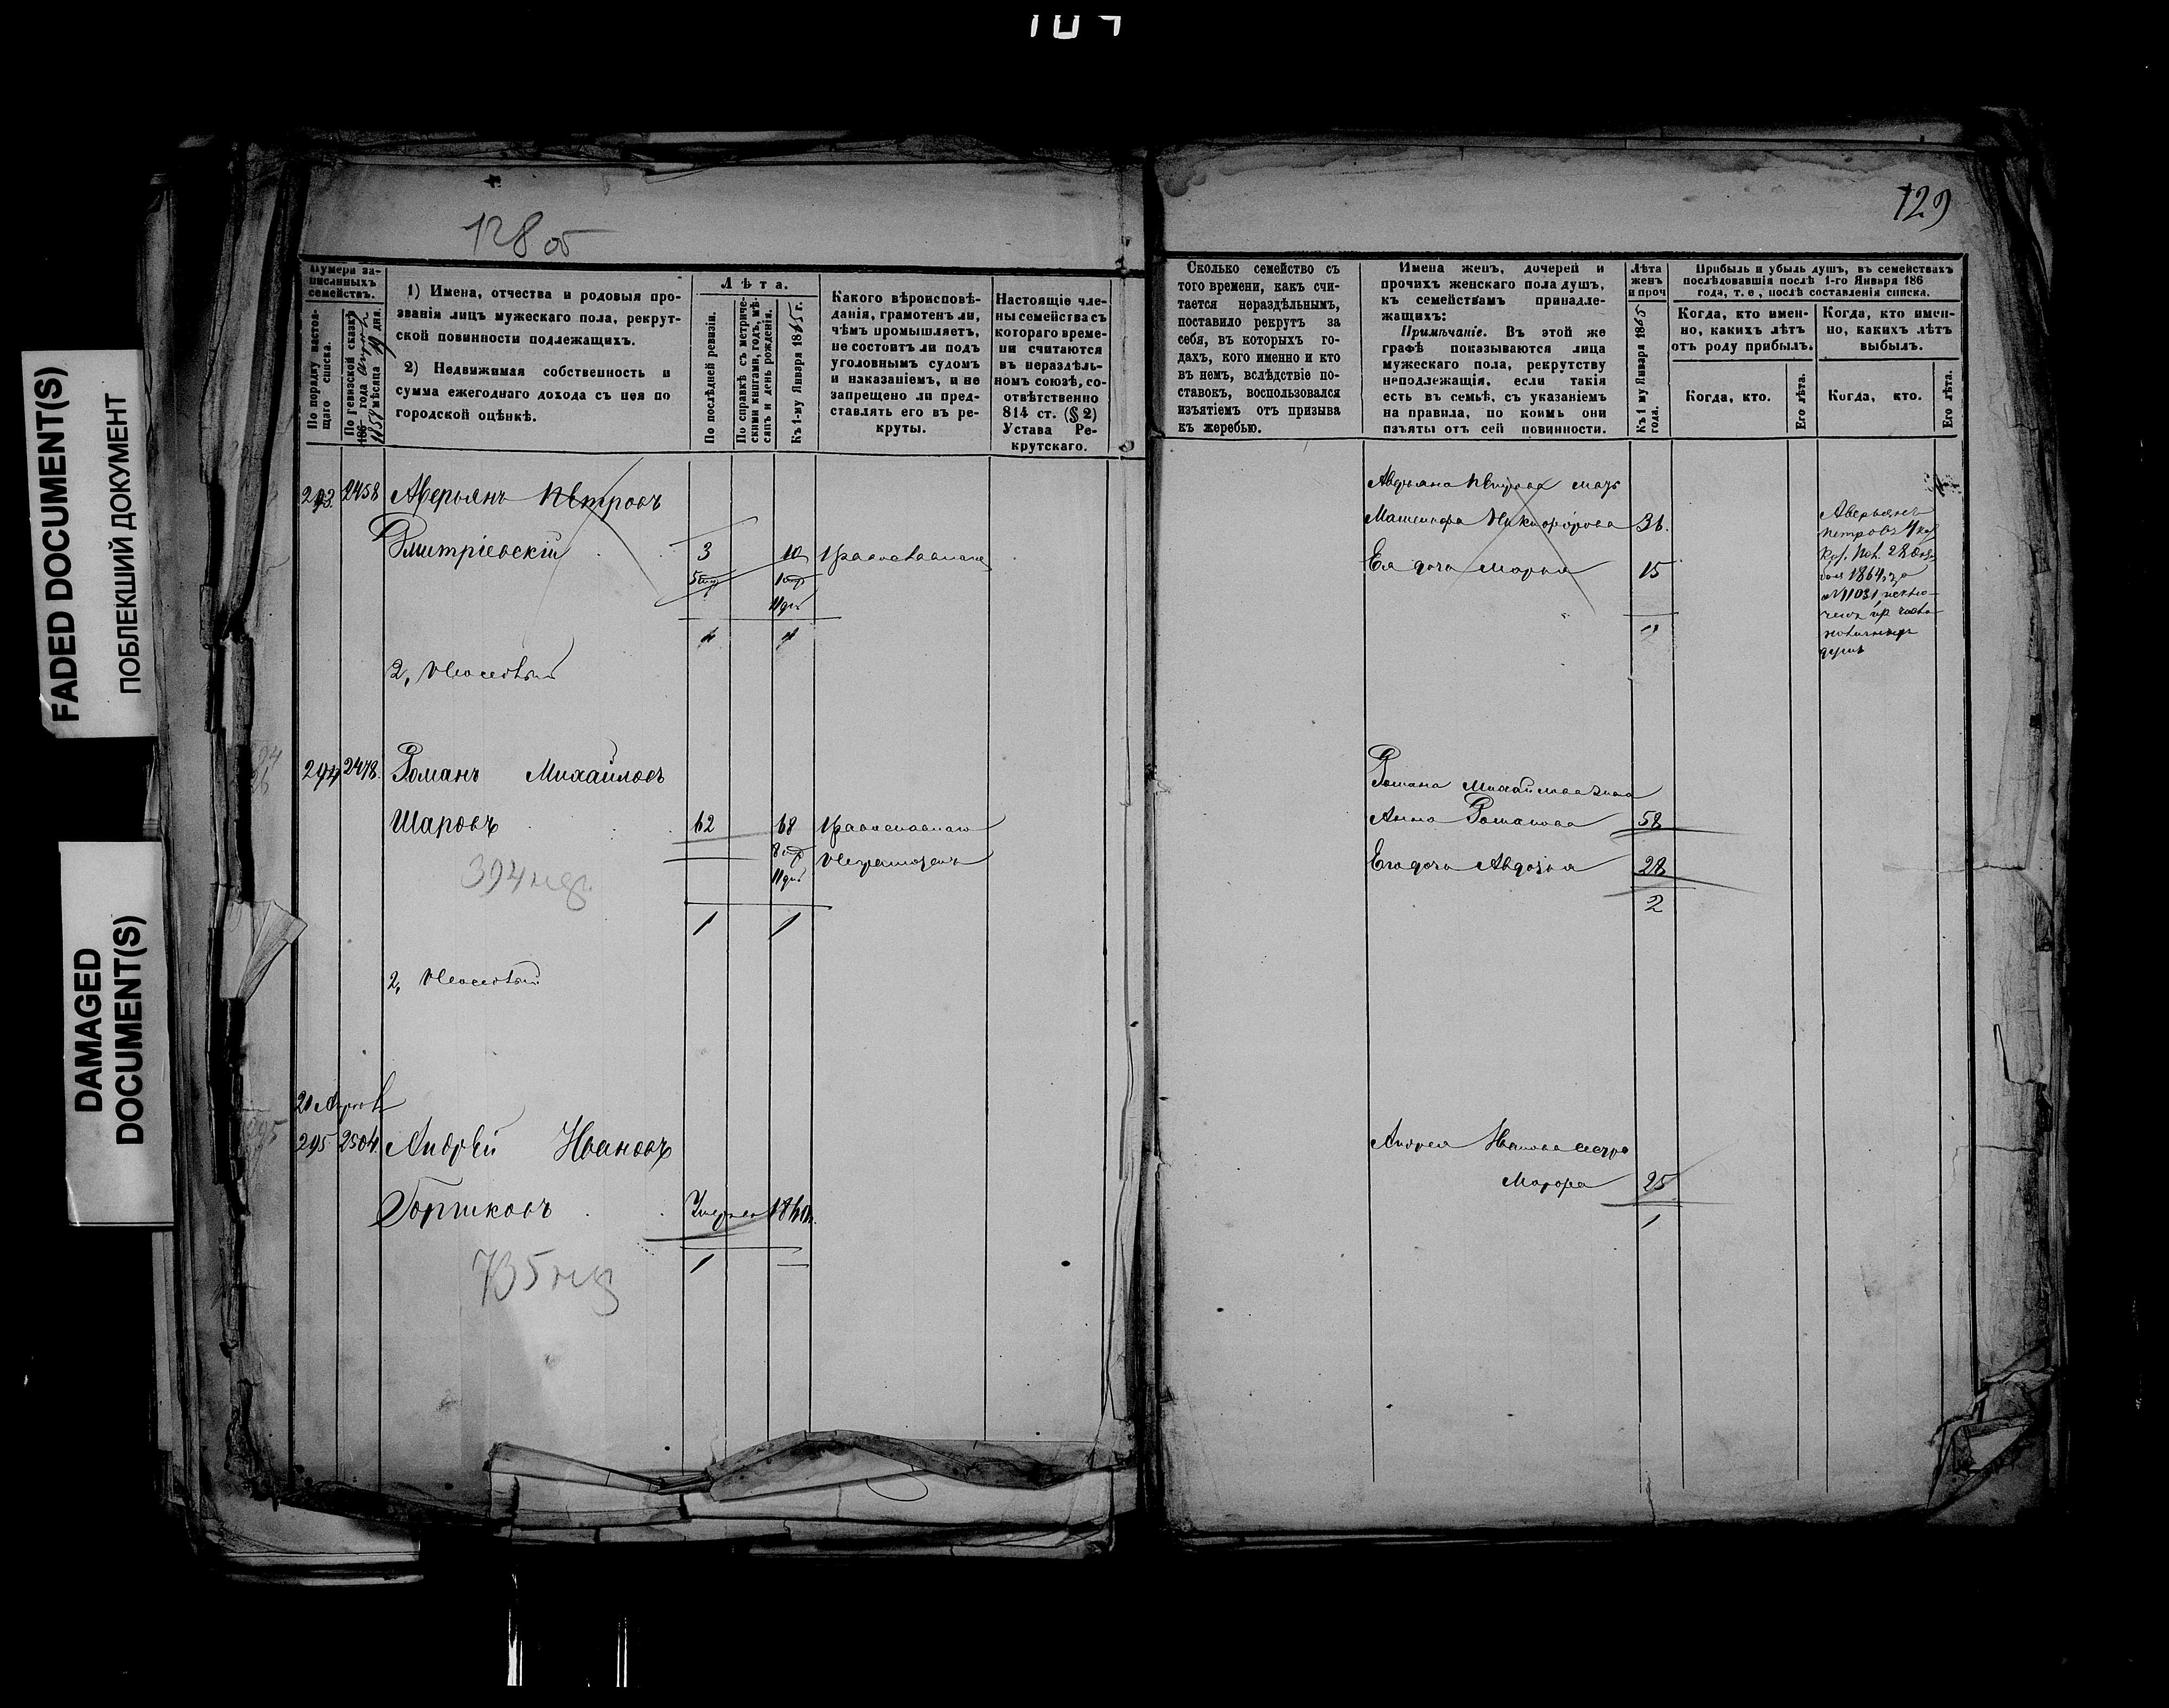 FADED DOCUMENT(S)
ПОБЛЕКШИЙ ДОКУМЕНТ
DAMAGED
DOCUMENT(S)
128 об
Нумера за-
писанныхъ
семействъ.
По порядку настоя-
щаго списка.
1) Имена, отчества и родовыя про-
званія лицъ мужескаго пола, рекрут-
ской повинности подлежащихъ.
2) Недвижимая собственность и
сумма ежегоднаго дохода съ нея по
городской оцѣнкѣ.
Лѣта.
По послѣдней ревизіи.
По справкѣ съ метриче-
скими книгами, годъ, мѣ-
сяцъ и день рожденія.
Къ 1-му Января 1865 г.
Какого вѣроисповѣ-
данія, грамотенъ ли,
чѣмъ промышляетъ,
не состоитъ ли подъ
уголовнымъ судомъ
и наказаніемъ, и не
запрещено ли пред-
ставлять его въ ре-
круты.
Настоящіе чле-
ны семейства съ
котораго време-
ни считаются
въ нераздѣль-
номъ союзѣ, со-
отвѣтственно
814 ст. (§ 2)
Устава Ре-
крутскаго.
293. 2458 Аверьянъ Петровъ
Дмитріевскій 3 10 Православнаго
11 дн
2, Неимѣетъ
294 2478. Романъ Михайловъ
Шаровъ 62 68 Православнаго
11 дн Неграмотенъ
394
1 1
2,
295 2504. Андрей Ивановъ
Горшковъ Умеръ 1860
735
1 —
129
Сколько семейство съ
того времени, какъ счи-
тается нераздѣльнымъ,
поставило рекрутъ за
себя, въ которыхъ го-
дахъ, кого именно и кто
въ немъ, вслѣдствіе по-
ставокъ, воспользовался
изъятіемъ отъ призыва
къ жеребью.
Имена женъ, дочерей и
прочихъ женскаго пола душъ,
къ семействамъ принадле-
жащихъ:
Примѣчаніе. Въ этой же
графѣ показываются лица
мужескаго пола, рекрутству
неподлежащія, если такія
есть въ семьѣ, съ указаніемъ
на правила, по коимъ они
изъяты отъ сей повинности.
Лѣта
женъ
и проч
Къ 1 му Января 1865
года.
Прибыль и убыль душъ, въ семействахъ
послѣдовавшія послѣ 1-го Января 186
года, т. е., послѣ составленія списка.
Когда, кто имен-
но, какихъ лѣтъ
отъ роду прибылъ.
Когда, кто имен-
но, какихъ лѣтъ
выбылъ.
Когда, кто.
Его лѣта.
Когда, кто.
Его лѣта.
Аверьяна Петрова мать
Никифорова 36.
Ея дочь Марья 15
2
Аверьянъ
Петровъ
1864
№ 11031
душъ
Романа Михайлова жена
Анна Романова 58
Его дочь Авдотья 28
2
Андрея Иванова сестра
25
1